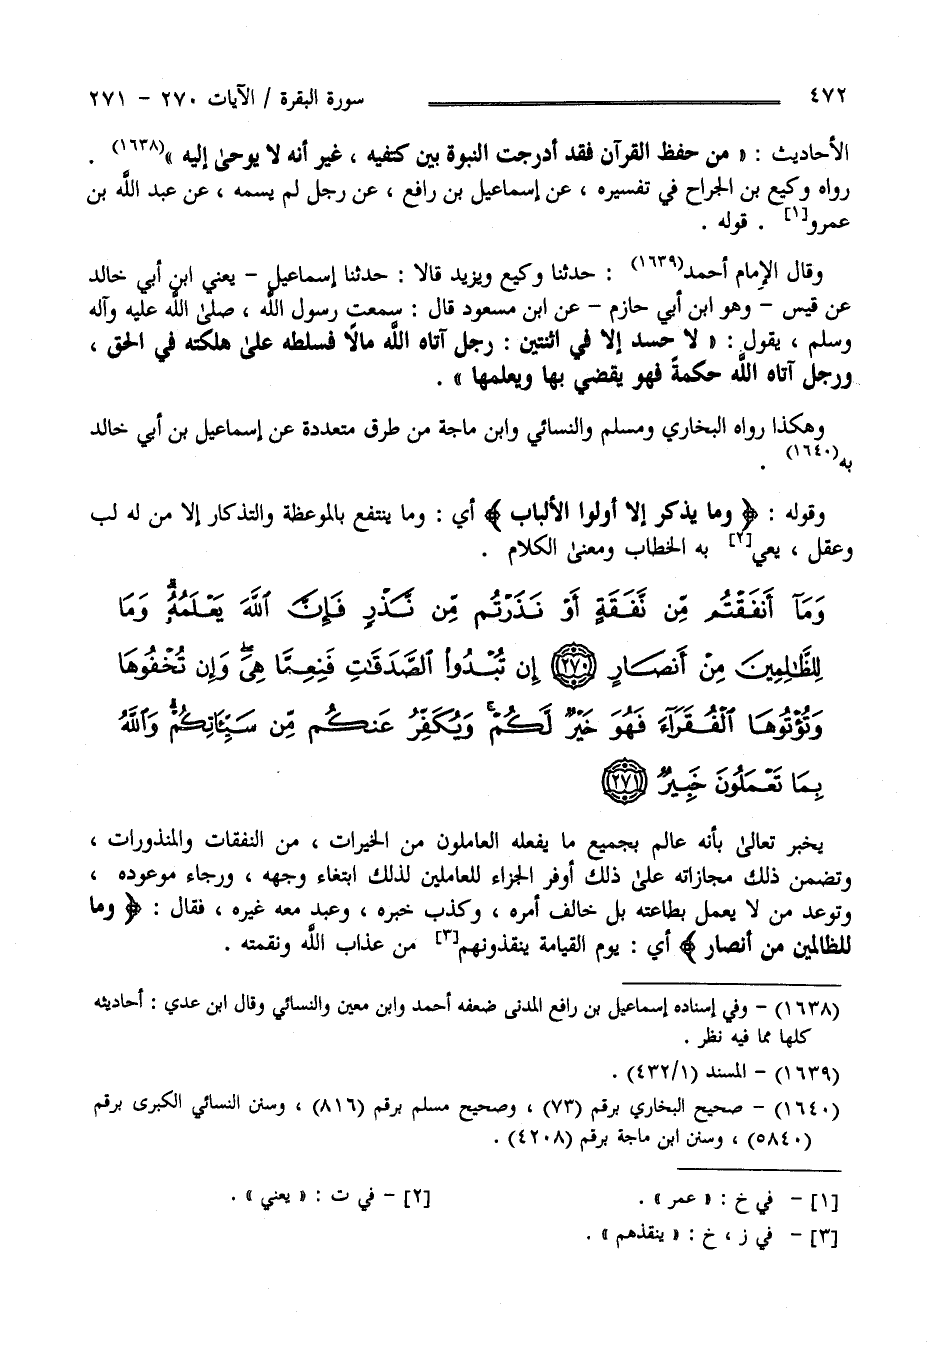 ٤٧٢ سورة البقرة / الآيات ٢٧٠ - ٢٧١
الأحاديث : « من حفظ القرآن فقد أدرجت النبوة بين كتفيه ، غير أنه لا يوحىٰ إليه »(١٦٣٨) .
رواه وكيع بن الجراح في تفسيره ، عن إسماعيل بن رافع ، عن رجل لم يسمه ، عن عبد اللَّه بن
عمرو[١] . قوله .
وقال الإمام أحمد(١٦٣٩) : حدثنا وكيع ويزيد قالا : حدثنا إسماعيل - يعني ابن أبي خالد
عن قيس - وهو ابن أبي حازم - عن ابن مسعود قال : سمعت رسول اللَّه ، صلىٰ اللَّه عليه وآله
وسلم ، يقول : « لا حسد إلا في اثنتين : رجل آتاه اللَّه مالًا فسلطه علىٰ هلكته في الحق ،
ورجل آتاه اللَّه حكمةً فهو يقضي بها ويعلمها » .
وهكذا رواه البخاري ومسلم والنسائي وابن ماجة من طرق متعددة عن إسماعيل بن أبي خالد
به(١٦٤٠) .
وقوله : ﴿ وما يذكر إلا أولوا الألباب ﴾ أي : وما ينتفع بالموعظة والتذكار إلا من له لب
وعقل ، يعي[٢] به الخطاب ومعنىٰ الكلام .
وَمَآ أَنفَقْتُم مِّن نَّفَقَةٍ أَوْ نَذَرْتُم مِّن نَّذْرٍ فَإِنَّ ٱللَّهَ يَعْلَمُهُۥۗ وَمَا
لِلظَّٰلِمِينَ مِنْ أَنصَارٍ ﴿٢٧٠﴾ إِن تُبْدُوا۟ ٱلصَّدَقَٰتِ فَنِعِمَّا هِىَۖ وَإِن تُخْفُوهَا
وَتُؤْتُوهَا ٱلْفُقَرَآءَ فَهُوَ خَيْرٌ لَّكُمْۚ وَيُكَفِّرُ عَنكُم مِّن سَيِّـَٔاتِكُمْۗ وَٱللَّهُ
بِمَا تَعْمَلُونَ خَبِيرٌ ﴿٢٧١﴾
يخبر تعالىٰ بأنه عالم بجميع ما يفعله العاملون من الخيرات ، من النفقات والمنذورات ،
وتضمن ذلك مجازاته علىٰ ذلك أوفر الجزاء للعاملين لذلك ابتغاء وجهه ، ورجاء موعوده ،
وتوعد من لا يعمل بطاعته بل خالف أمره ، وكذب خبره ، وعبد معه غيره ، فقال : ﴿ وما
للظالمين من أنصار ﴾ أي : يوم القيامة ينقذونهم[٣] من عذاب اللَّه ونقمته .
(١٦٣٨) - وفي إسناده إسماعيل بن رافع المدنى ضعفه أحمد وابن معين والنسائي وقال ابن عدي : أحاديثه
كلها مما فيه نظر .
(١٦٣٩) - المسند (٤٣٢/١) .
(١٦٤٠) - صحيح البخاري برقم (٧٣) ، وصحيح مسلم برقم (٨١٦) ، وسنن النسائي الكبرى برقم
(٥٨٤٠) ، وسنن ابن ماجة برقم (٤٢٠٨) .
[١] - في خ : « عمر » . [٢] - في ت : « يعني » .
[٣] - في ز ، خ : « ينقذهم » .